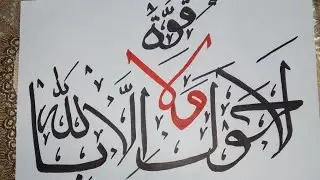 لَا حَوْلَ وَلَا قُوَّةَ إِلَّا بِاللّٰه